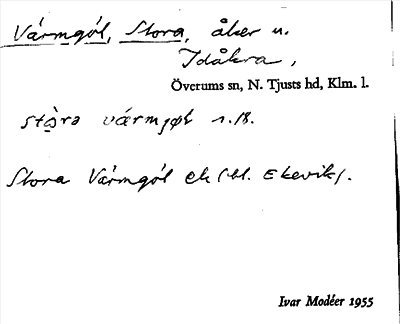 Vármgól, Stora, åker u.
Idåkra,
Överums sn, N. Tjusts hd, Klm. l.
stòra vármjøl s.B.
Stora Vármgól ek (bl. Ekevik).
Ivar Modéer 1955